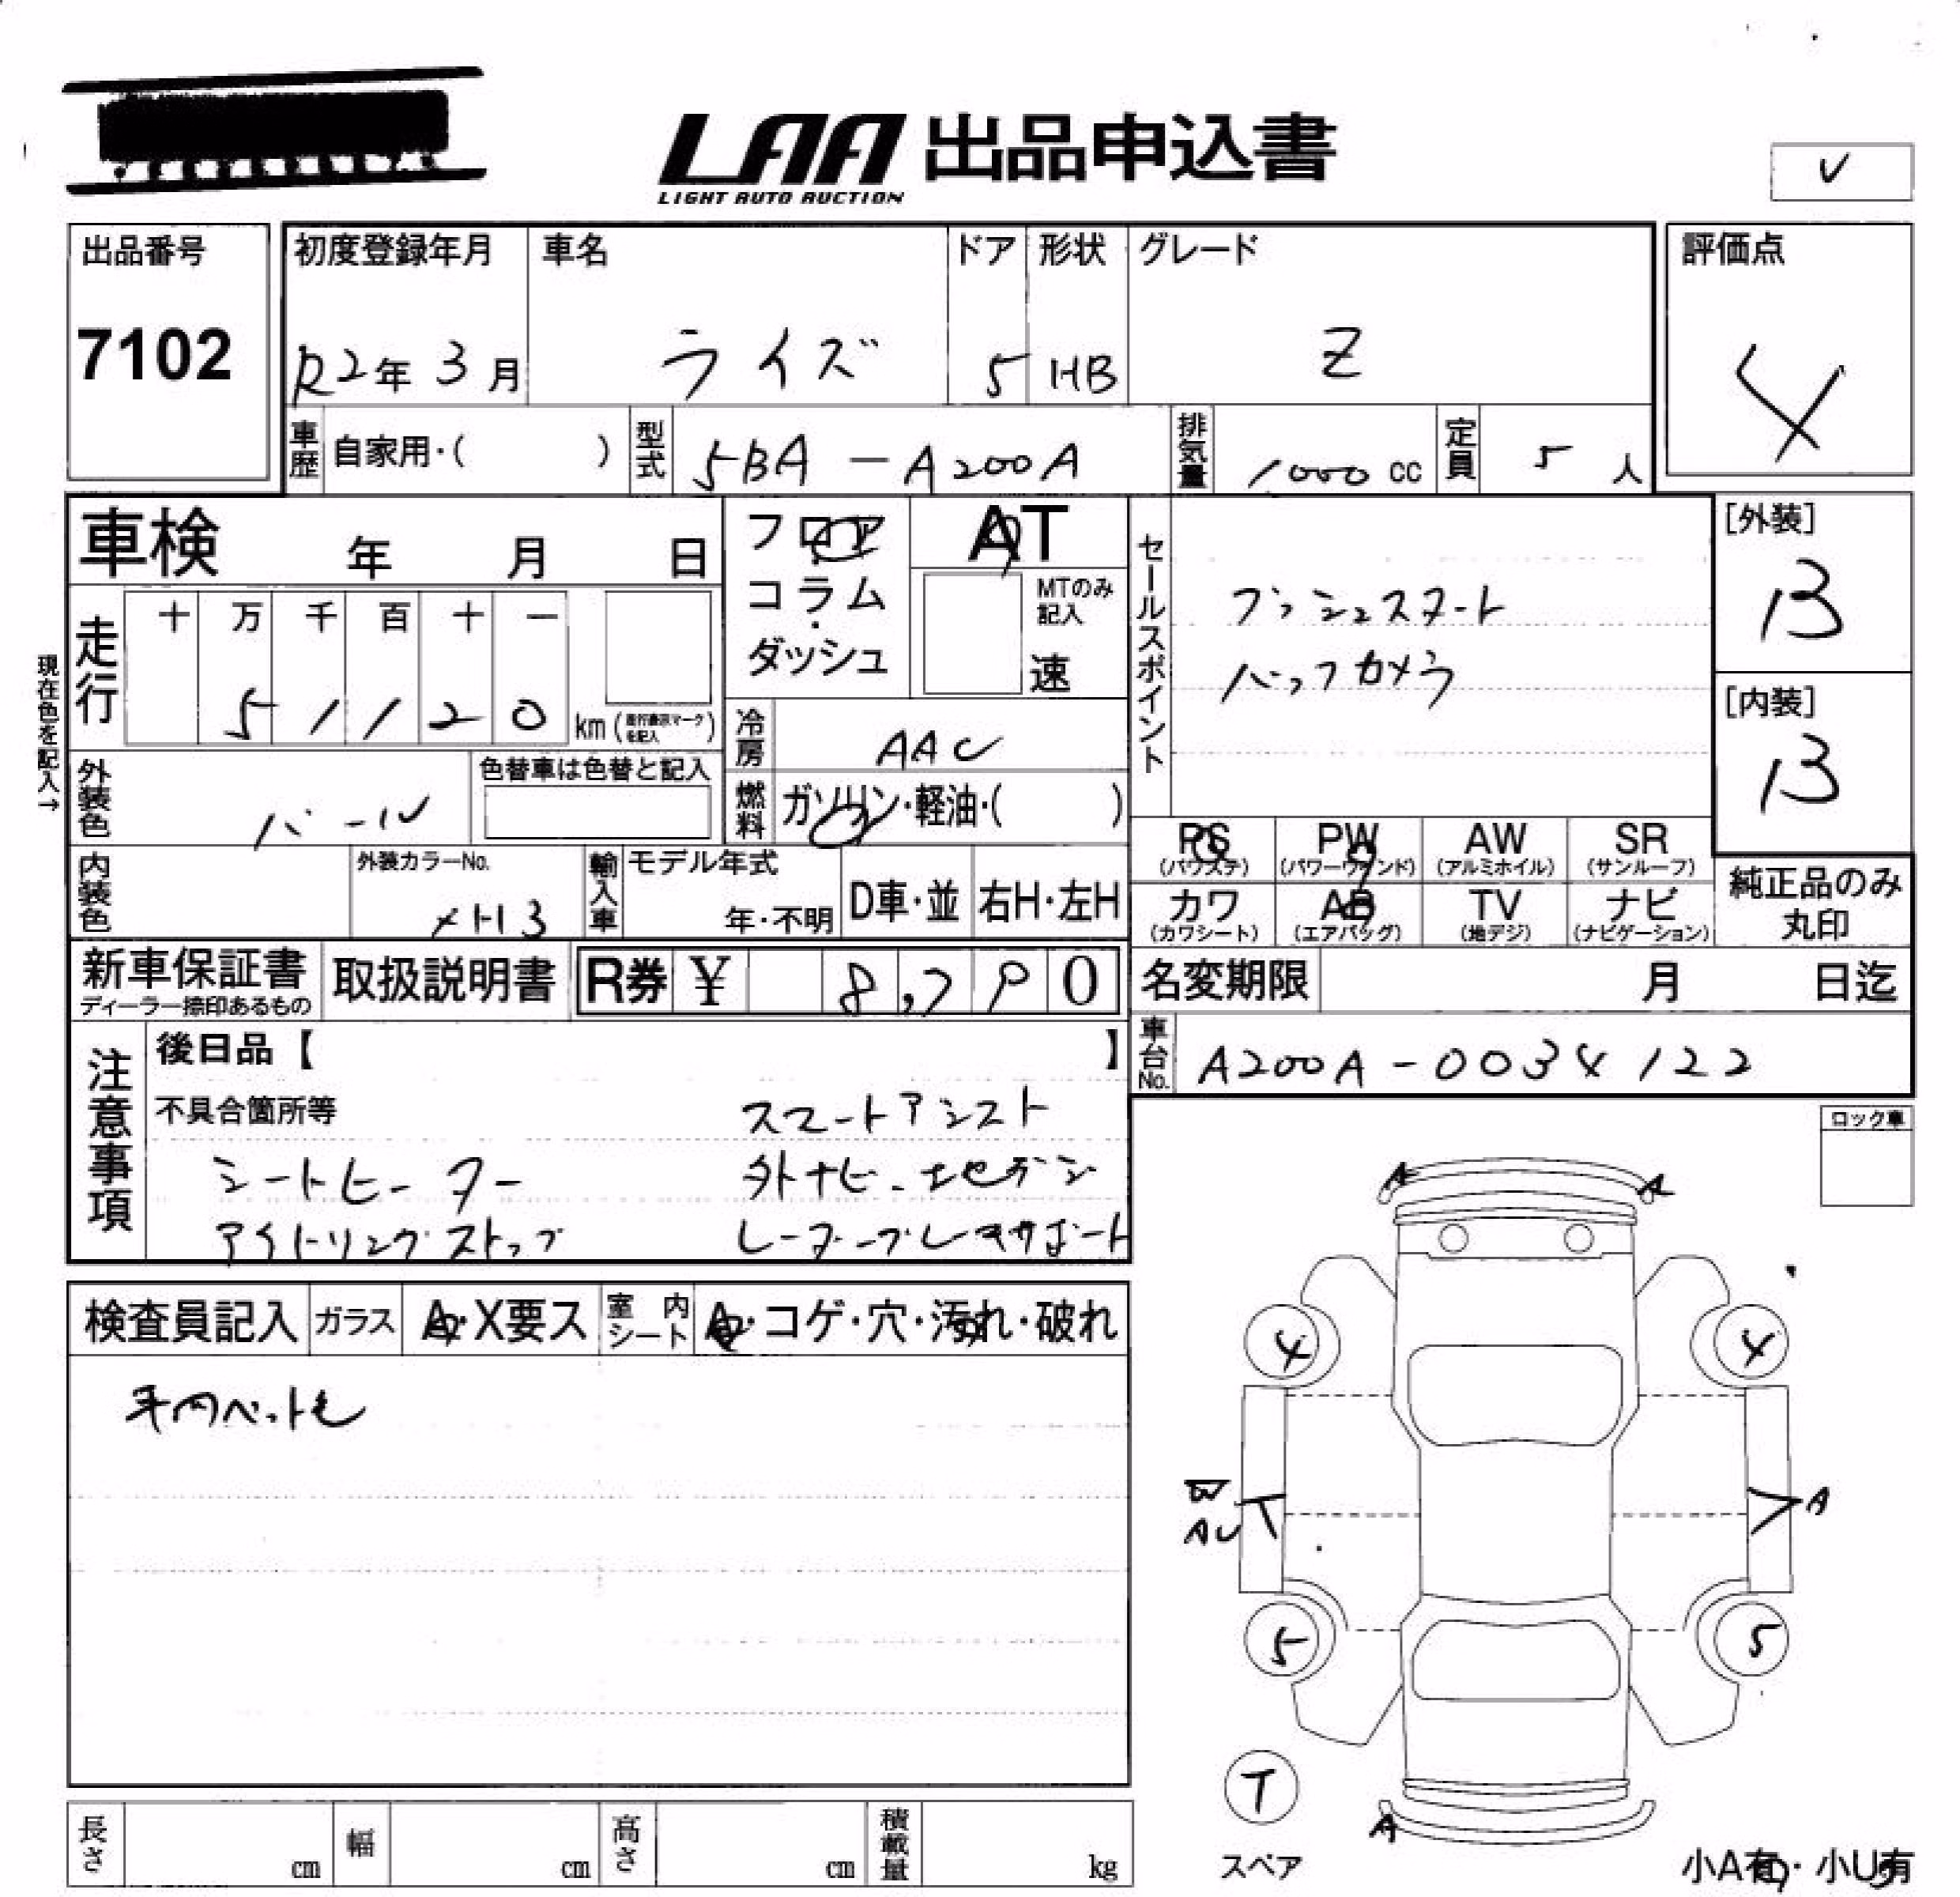 LAA 出品申込書
LIGHT AUTO AUCTION
出品番号
7102
初度登録年月
R2年 3月
車名
ライズ
ドア
5
形状
HB
グレード
Z
評価点
4
車歴 自家用・( )
型式 5BA - A200A
排気量 1000 cc
定員 5 人
車検 年 月 日
フロア・コラム・ダッシュ
AT
MTのみ記入
速
セールスポイント
プッシュスタート
バックカメラ
[外装]
B
[内装]
B
現在色を記入→
走行
十 万 千 百 十 一
5 1 1 2 0 km (走行表示マークを記入)
冷房 AAC
外装色 パール
色替車は色替と記入
燃料 ガソリン・軽油・( )
PS (パワステ)
PW (パワーウィンド)
AW (アルミホイル)
SR (サンルーフ)
カワ (カワシート)
AB (エアバッグ)
TV (地デジ)
ナビ (ナビゲーション)
純正品のみ丸印
内装色
外装カラーNo.
XH3
輸入車
モデル年式
年・不明
D車・並
右H・左H
新車保証書
ディーラー捺印あるもの
取扱説明書
R券 ¥ 8,790
名変期限 月 日迄
車台No. A200A-0034122
注意事項
後日品【 】
不具合箇所等
スマートアシスト
シートヒーター
外ナビ
アイドリングストップ
ロック車
検査員記入
ガラス A・X要ス
室内シート A・コゲ・穴・汚れ・破れ
車内ペット毛
A A
4 4
W
AU
A
5 5
T
スペア
A
小A有・小U有
長さ cm
幅 cm
高さ cm
積載量 kg